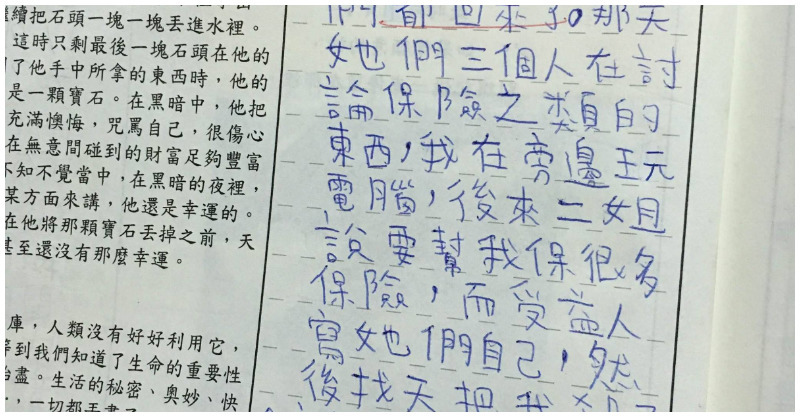 繼續把石頭一塊一塊丟進水裡。
這時只剩最後一塊石頭在他的
了他手中所拿的東西時，他的
是一顆寶石。在黑暗中，他把
充滿懊悔，咒罵自己，很傷心
在無意間碰到的財富足夠豐富
不知不覺當中，在黑暗的夜裡，
某方面來講，他還是幸運的。
在他將那顆寶石丟掉之前，天
甚至還沒有那麼幸運。
庫，人類沒有好好利用它，
等到我們知道了生命的重要性
殆盡。生活的秘密、奧妙、快
，一切都丟盡了
們都回來了那天
她們三個人在討
論保險之類的
東西，我在旁邊玩
電腦，後來二姐
說要幫我保很多
保險，而受益人
寫她們自己，然
後找天把我